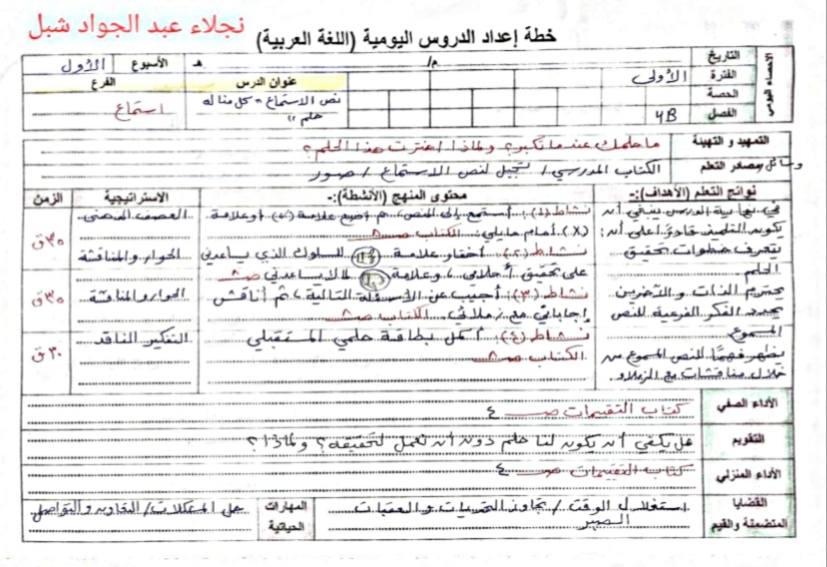 نجلاء عبد الجواد شبل
خطة إعداد الدروس اليومية (اللغة العربية)
الاحصاء اليومي
التاريخ / م / هـ الأسبوع الأول
الفترة الأولى عنوان الدرس الفرع
الحصة نص الاستماع "كل منا له استماع
الفصل 4B حلم"
التمهيد والتهيئة ما حلمك عندما تكبر؟ ولماذا اخترت هذا الحلم؟
وسائل ومصادر التعلم الكتاب المدرسي / تسجيل لنص الاستماع / صور
نواتج التعلم (الأهداف):- محتوى المنهج (الأنشطة):- الاستراتيجية الزمن
في نهاية الدرس ينبغي أن نشاط (١): أستمع إلى النص، ثم أضع علامة (✓) أو علامة العصف الذهني
يكون التلميذ قادرًا على أن: (×) أمام ما يلي: الكتاب صـ ٣٥ق
يتعرف خطوات تحقيق نشاط (٢): أختار علامة للسلوك الذي يساعدني الحوار والمناقشة
الحلم. على تحقيق أحلامي، وعلامة لما لا يساعدني صـ
يحترم الذات والآخرين نشاط (٣): أجيب عن الأسئلة التالية، ثم أناقش الحوار والمناقشة ٣٥ق
يحدد الفكر الفرعية للنص إجاباتي مع زملائي. الكتاب صـ
المسموع نشاط (٤): أكمل بطاقة حلمي المستقبلي التفكير الناقد ٣٠ق
يظهر فهمًا للنص المسموع من الكتاب صـ
خلال مناقشات مع الزملاء.
الأداء الصفي كتاب التقييمات صـ ٤
التقويم هل يكفي أن يكون لنا حلم دون أن نعمل لتحقيقه؟ ولماذا؟
الأداء المنزلي كتاب التقييمات صـ ٤
القضايا المتضمنة والقيم استغلال الوقت / تجاوز التحديات والعقبات المهارات الحياتية حل المشكلات / التعاون والتواصل
الصبر